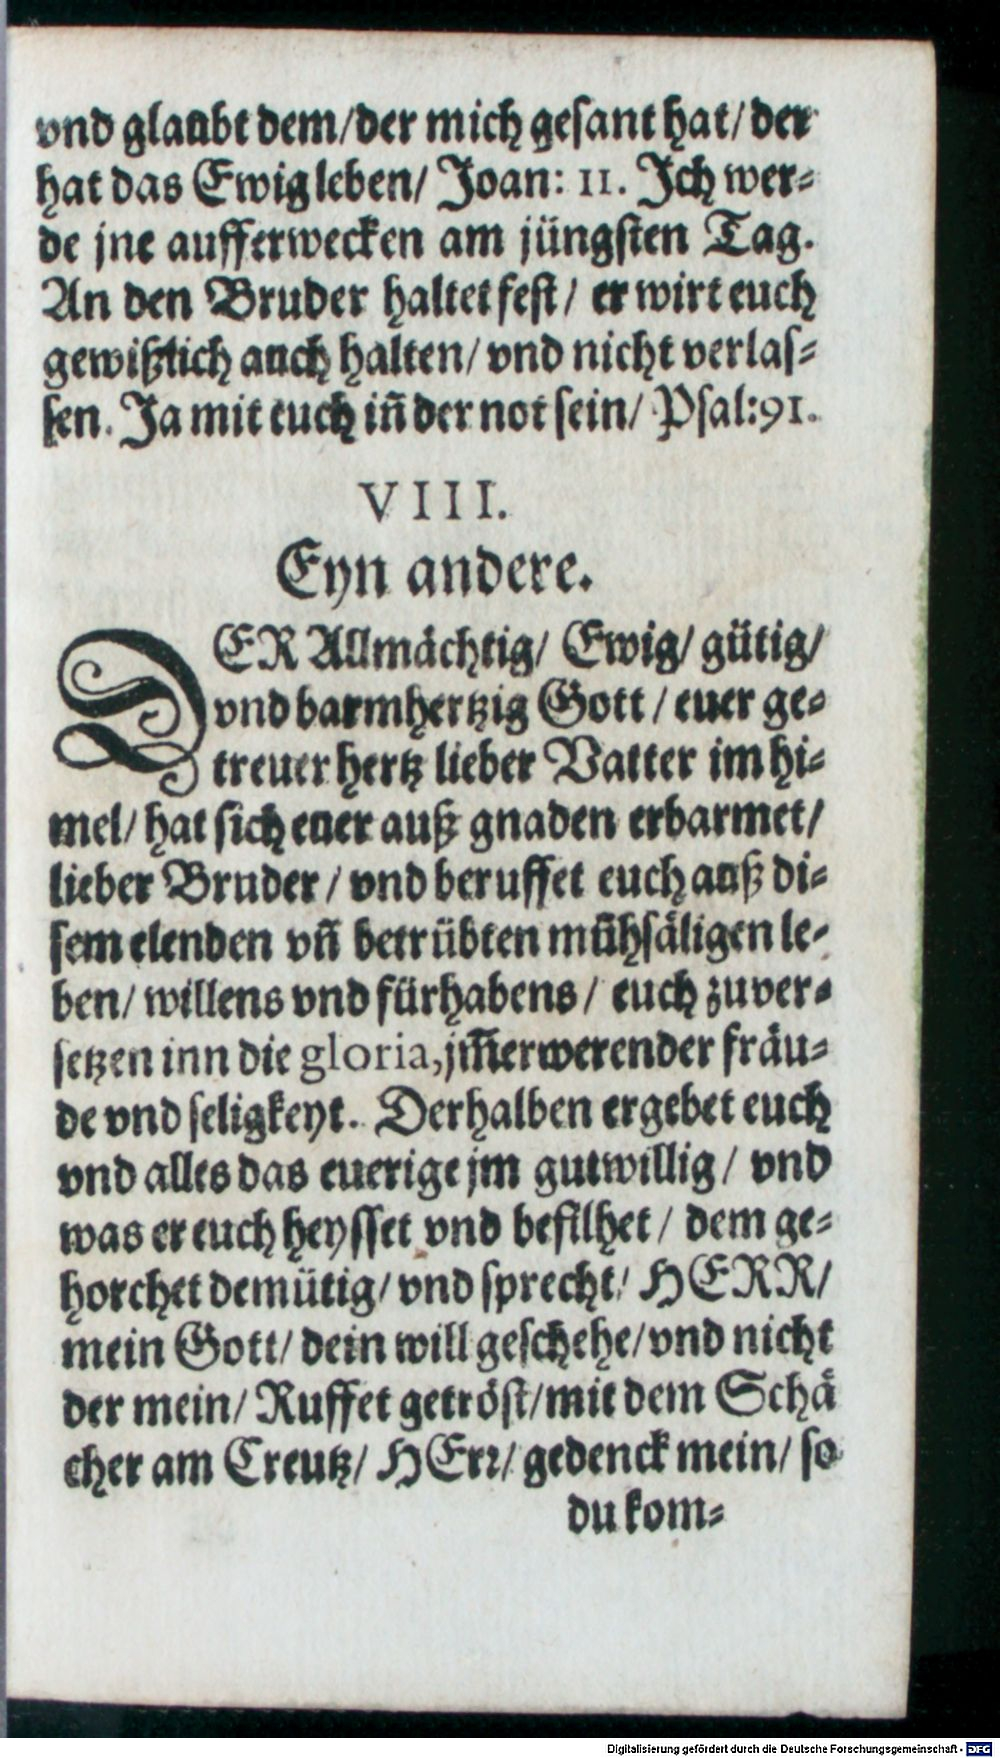 vnd glaubt dem/ der mich gesant hat/ der
hat das Ewig leben/ Joan: 11. Jch wer⸗
de jne aufferwecken am jüngsten Tag.
An den Bruder haltet fest/ er wirt euch
gewißlich auch halten/ vnd nicht verlas⸗
sen. Ja mit euch iñ der not sein/ Psal:91.
VIII.
Eyn andere.
DER Allmächtig/ Ewig/ gütig/
vnd barmhertzig Gott/ euer ge⸗
treuer hertz lieber Vatter im hi⸗
mel/ hat sich euer auß gnaden erbarmet/
lieber Bruder/ vnd beruffet euch auß di⸗
sem elenden vñ betrübten mühsäligen le⸗
ben/ willens vnd fürhabens/ euch zuver⸗
setzen inn die gloria, jm̃erwerender fräu⸗
de vnd seligkeyt. Derhalben ergebet euch
vnd alles das euerige jm gutwillig/ vnd
was er euch heysset vnd befilhet/ dem ge⸗
horchet demütig/ vnd sprecht/ HERR/
mein Gott/ dein will geschehe/ vnd nicht
der mein/ Ruffet getröst/ mit dem Schä
cher am Creutz/ HErr/ gedenck mein/ so
du kom⸗
Digitalisierung gefördert durch die Deutsche Forschungsgemeinschaft - DFG